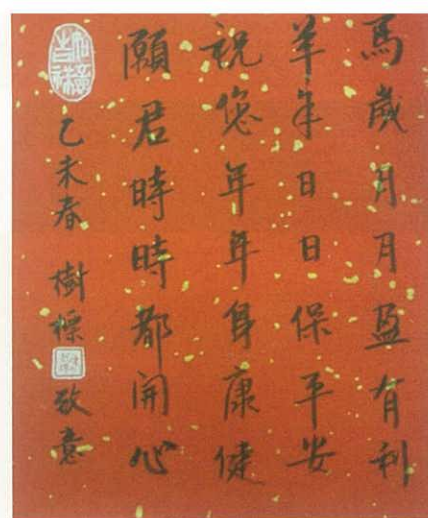 馬歲月月盈有利
羊年日日保平安
祝您年年身康健
願君時時都開心
吉祥如意
乙未春 樹標 致意